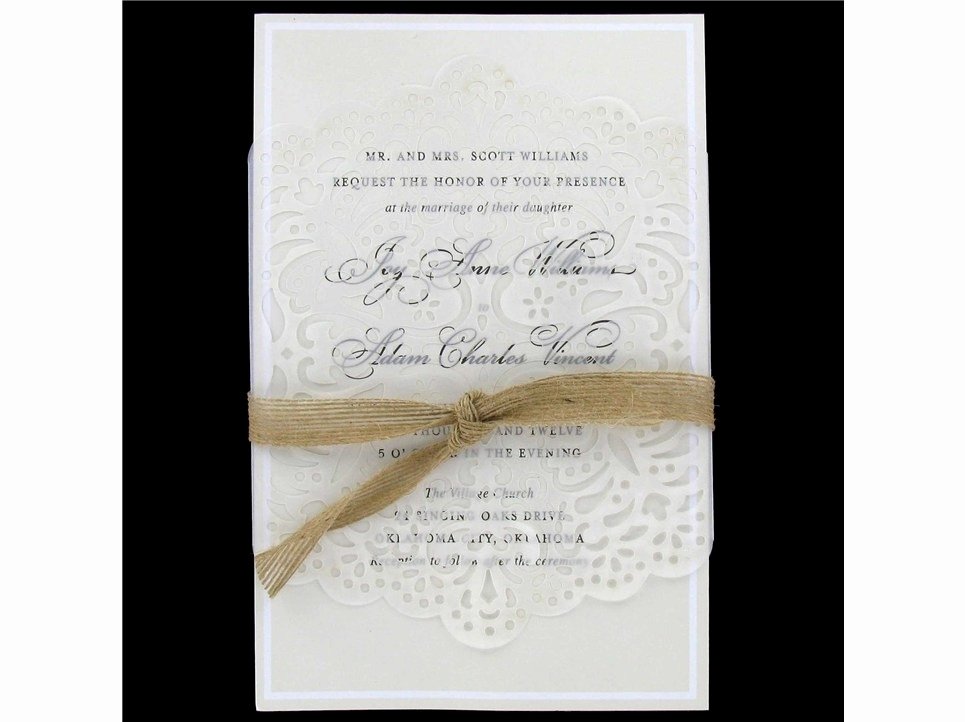 MR. AND MRS. SCOTT WILLIAMS
REQUEST THE HONOR OF YOUR PRESENCE
at the marriage of their daughter
Joy Anne Williams
to
Adam Charles Vincent
THOU AND TWELVE
5 O' IN THE EVENING
The Village Church
SINGING OAKS DRIVE
OKLAHOMA CITY, OKLAHOMA
Reception to follow after the ceremony